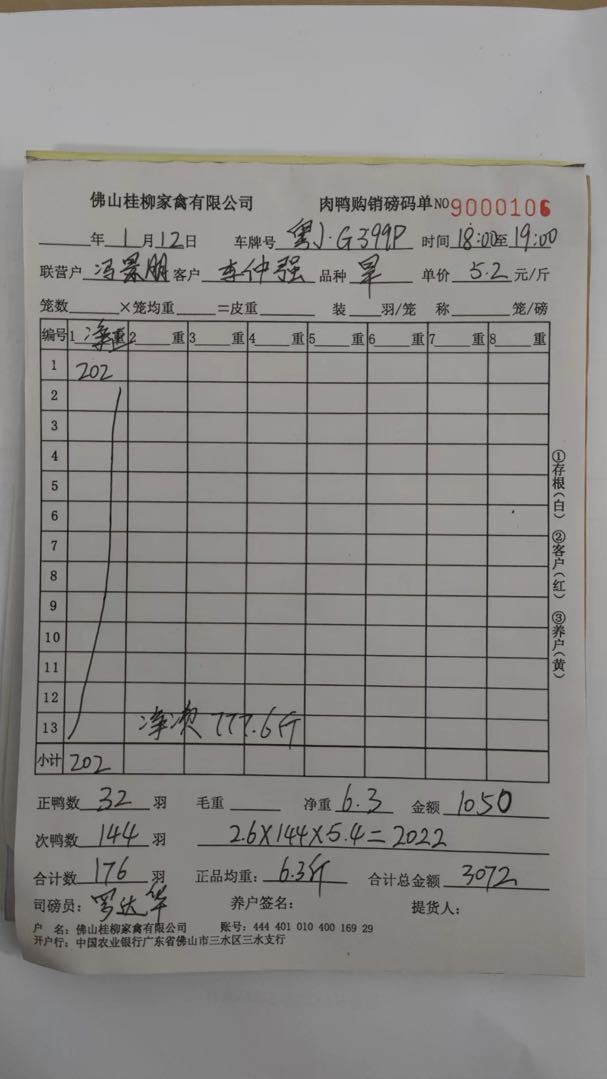 佛山桂柳家禽有限公司 肉鸭购销磅码单 NO 9000106
年 1 月 12 日 车牌号 粤J·G399P 时间 18:00至 19:00
联营户 冯景朋 客户 李仲强 品种 旱 单价 5.2 元/斤
笼数 ×笼均重 =皮重 装 羽/笼 称 笼/磅
编号 1 净重 2 重 3 重 4 重 5 重 6 重 7 重 8 重
1 202
2
3
4
5
6
7
8
9
10
11
12
13 净次 777.6斤
小计 202
①存根(白) ②客户(红) ③养户(黄)
正鸭数 32 羽 毛重 净重 6.3 金额 1050
次鸭数 144 羽 2.6×144×5.4=2022
合计数 176 羽 正品均重: 6.3斤 合计总金额 3072
司磅员: 罗达华 养户签名: 提货人:
户 名: 佛山桂柳家禽有限公司 账号: 444 401 010 400 169 29
开户行: 中国农业银行广东省佛山市三水区三水支行